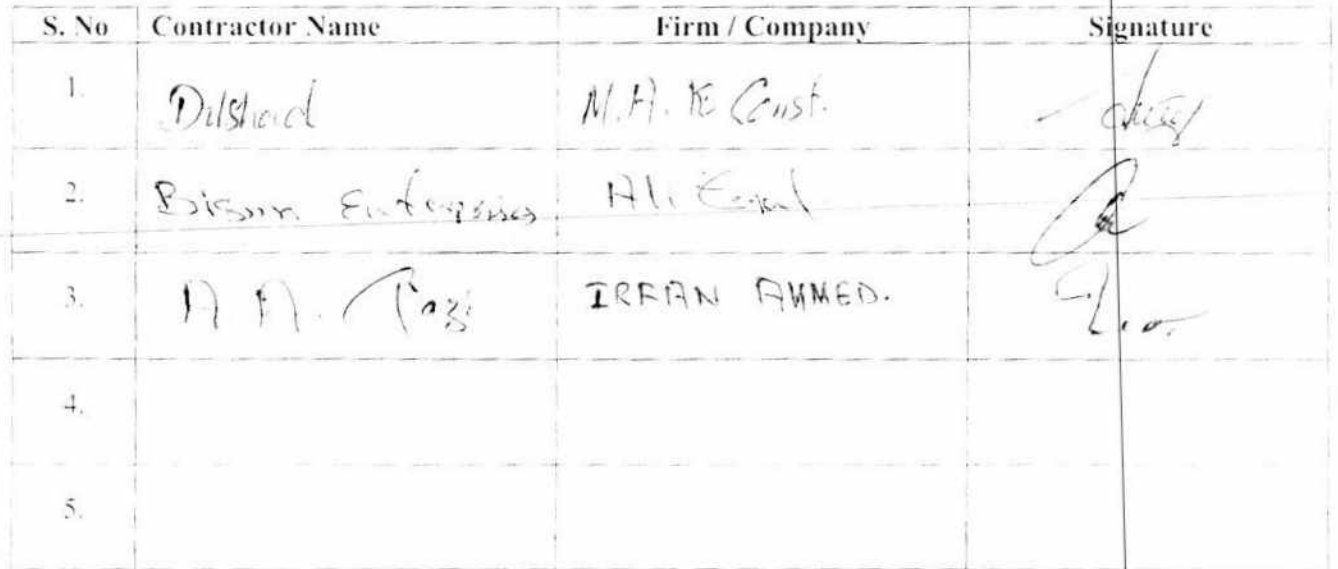 S. No Contractor Name Firm / Company Signature
1. Dilshad M.A.K Const.
2. Enterprises Ali
3. A A. IRFAN AHMED.
4.
5.